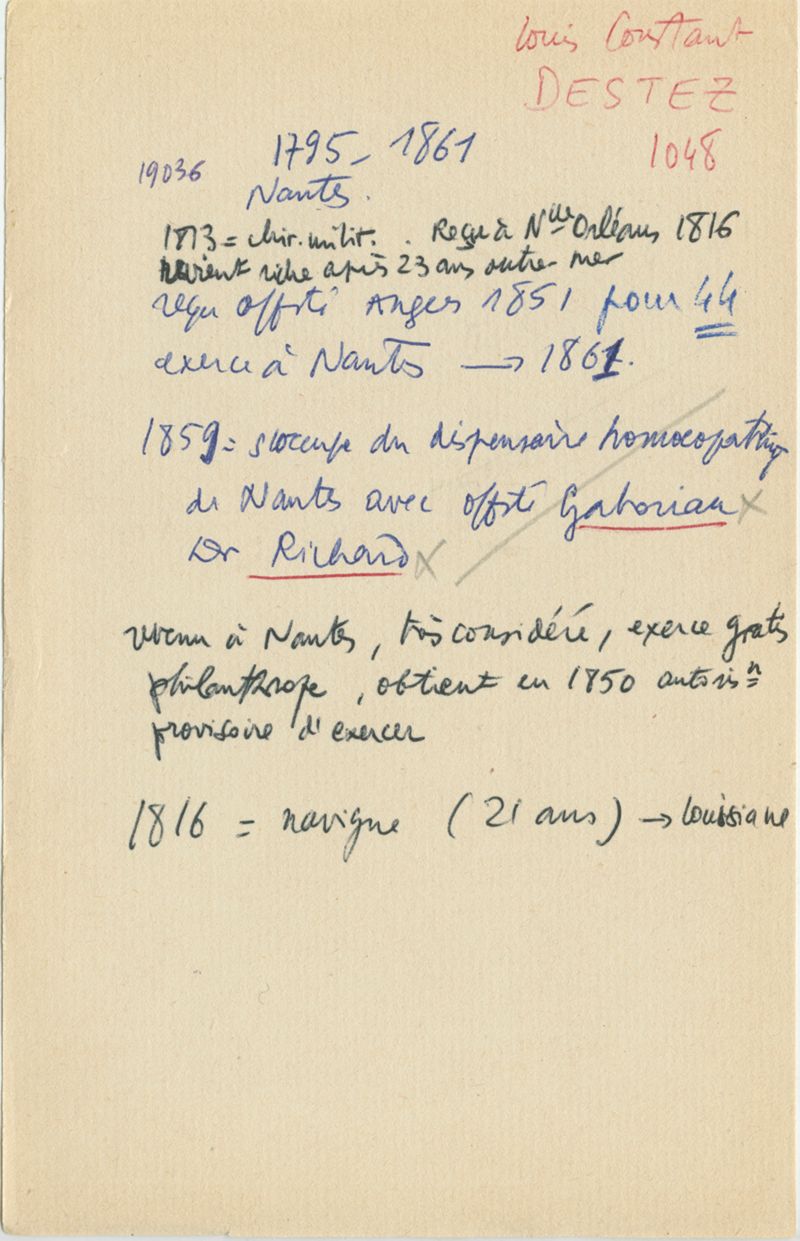 Louis Constant
DESTEZ
1048
19036
1795 - 1861
Nantes.
1813 = chir. milit. . Reçu à Nlle Orléans 1816
revient riche après 23 ans outre mer
reçu offté Angers 1851 pour 44
exerce à Nantes → 1861.
1859 = s'occupe du dispensaire homoeopathiq
de Nantes avec offté Gaboriau x
Dr Richard x
revenu à Nantes, très considéré, exerce gratis
philanthrope, obtient en 1850 autorisn
provisoire d'exercer
1816 = navigue (21 ans) → Louisiane